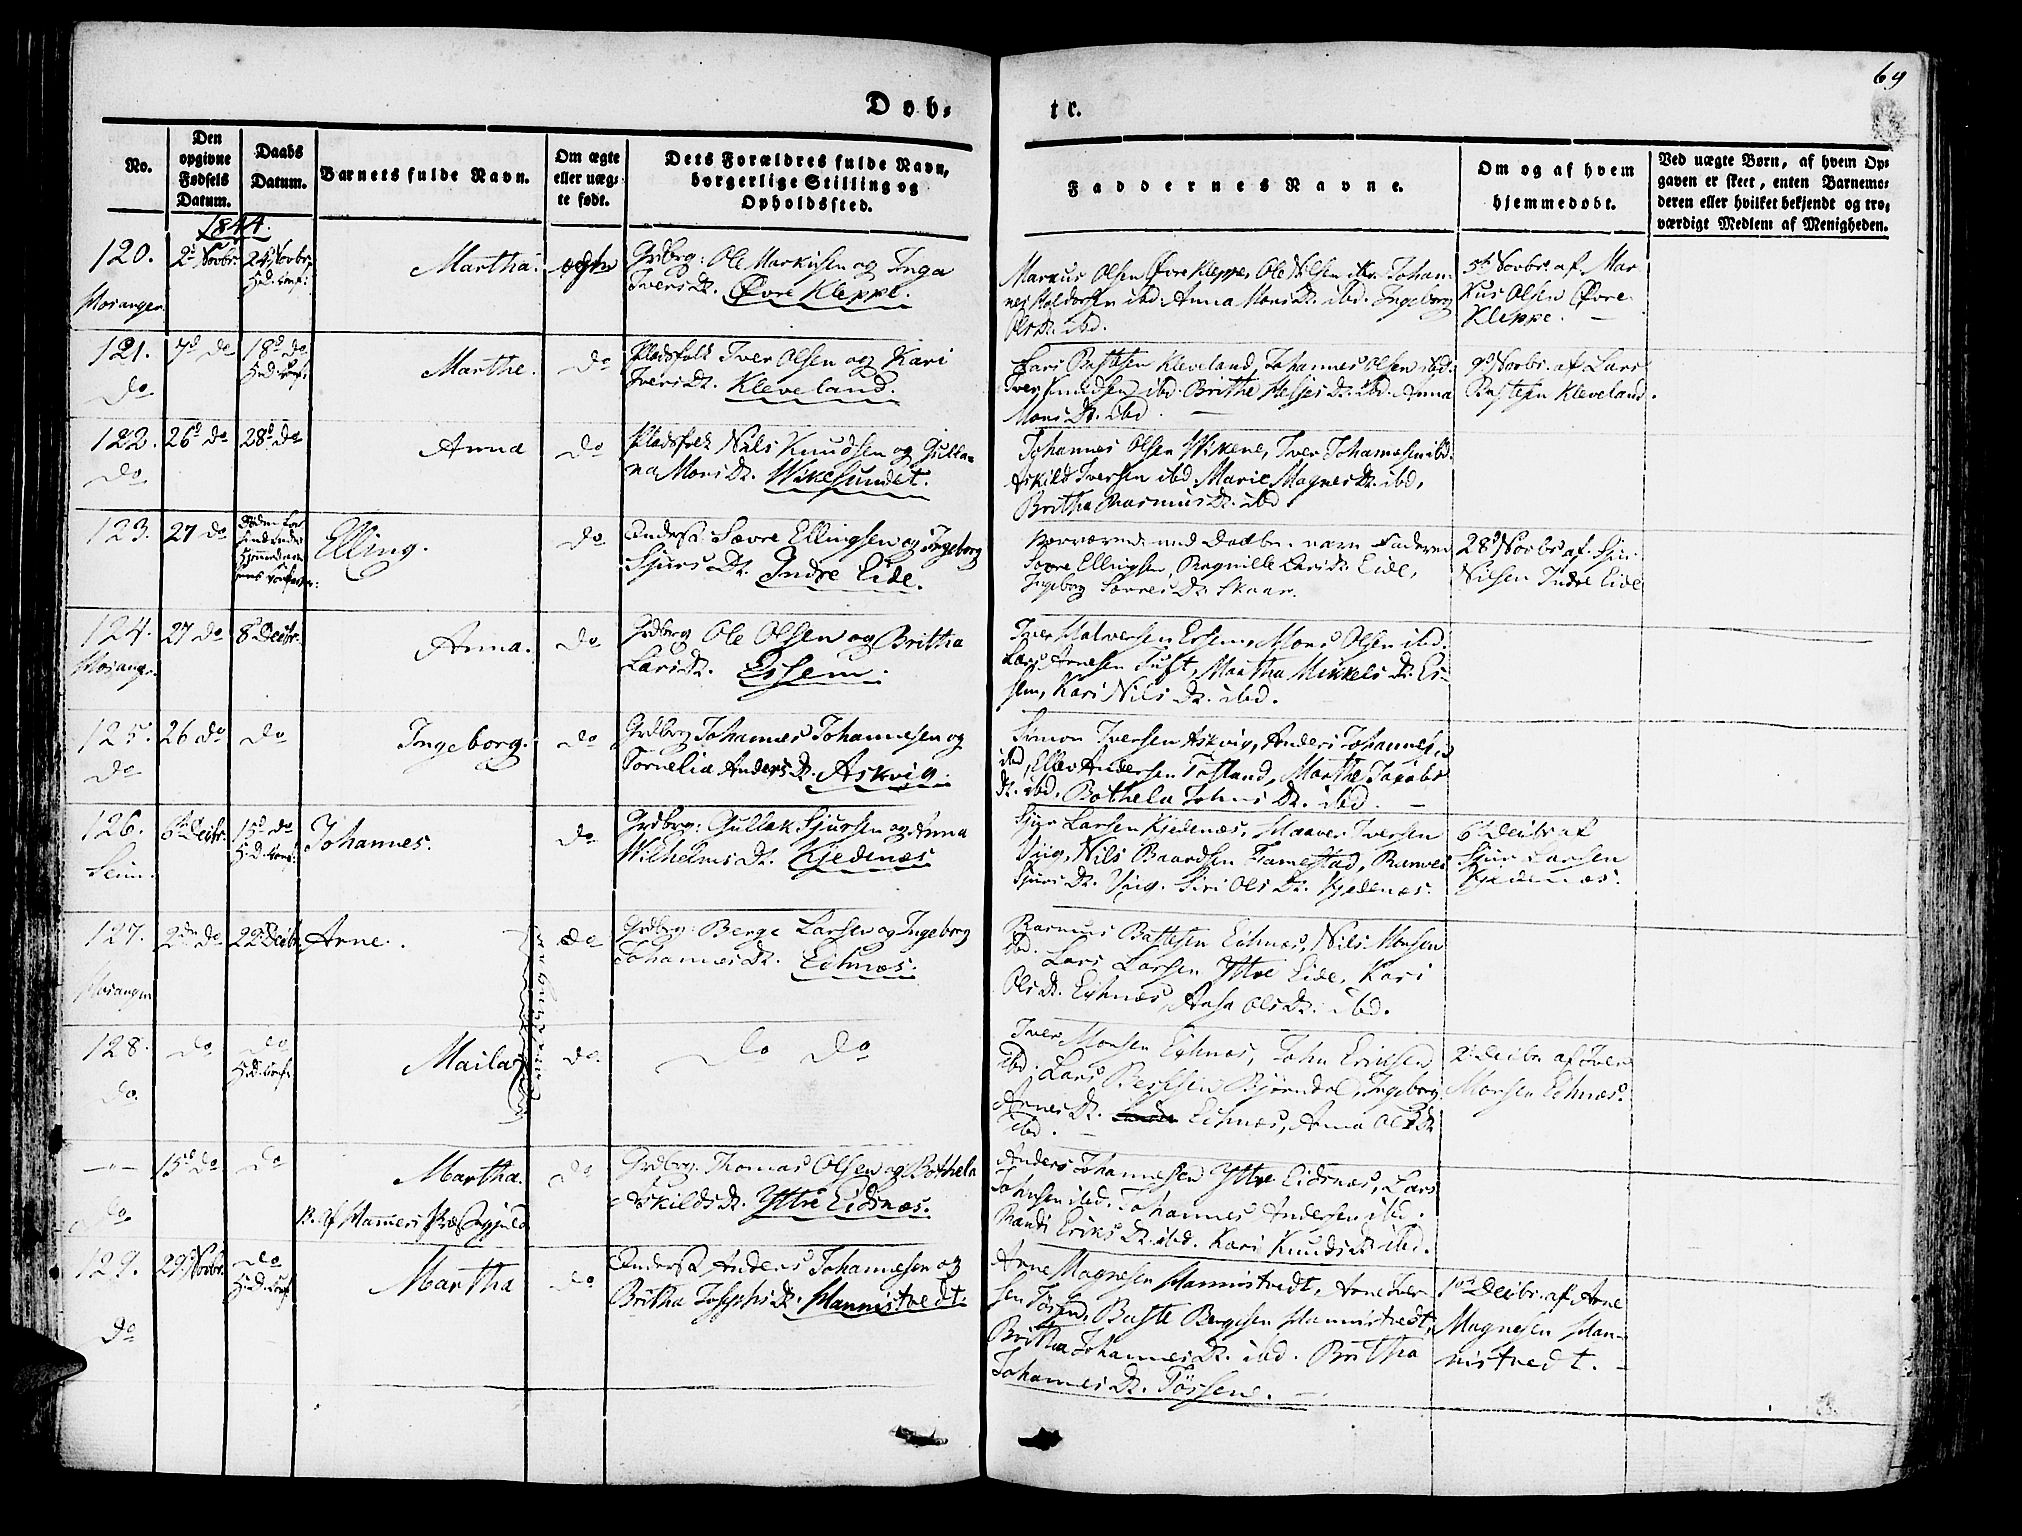 69
Døb-
te.
No.
Den opgivne Fødsels Datum.
Daabs Datum.
Barnets fulde Navn.
Om ægte eller uægte født.
Dets Forældres fulde Navn, borgerlige Stilling og Opholdssted.
Faddernes Navne.
Om og af hvem hjemmedøbt.
Ved uægte Børn, af hvem Opgaven er skeet, enten Barnemoderen eller hvilket bekjendt og troværdigt Medlem af Menigheden.
1844.
120.
Hosanger
2d Novbr.
24d Novbr.
H.D. Conf.
Martha.
ægte
Grdbrg: Ole Markusen og Inga
Ivers Dt. Øvre Kleppe.
Markus Olsen Øvre Kleppe, Ole Nilsen ibd. Johan-
nes Haldorsen ibd. Anna Mons Dt. ibd. Ingeborg
Ols Dt. ibd.
5te Novbr. af Mar-
kus Olsen Øvre
Kleppe.
121.
do
7d do
18d do
H.D. Conf.
Marthe.
do
Pladsfolk Iver Olsen og Kari
Ivers Dt. Kleveland.
Lars Bastesen Kleveland, Johannes Olsen ibd.
Iver Knudsen ibd. Brithe Heljes Dt. ibd. Anna
Mons Dt. ibd.
9d Novbr. af Lars
Bastesen Kleveland.
122.
do
26d do
28d do
Anna
do
Pladsfolk Nils Knudsen og Gulla-
na Mons Dt. Wikesundet.
Johannes Olsen Wikene, Iver Johannesen ibd.
Askild Iversen ibd. Marie Magnes Dt. ibd,
Britha Rasmus Dt. ibd
123.
27 do
Elling.
do
Inders: Sævre Ellingsen og Ingeborg
Sjurs Dt. Indre Eide.
Nærværende ved Daaben vare Faderen
Sævre Ellingsen, Ragnille Lars Dt. Eide,
Ingeborg Sævres Dt. Skaar.
28d Novbr. af Sjur
Nilsen Indre Eide
124.
Hosanger
27 do
8d Decbr.
Anna.
do
Grdbrg Ole Olsen og Britha
Lars Dt. Essem.
Iver Halversen Essem, Mons Olsen ibd.
Lars Arnesen Tuft, Martha Mikkels Dt. Es-
sem, Kari Nils Dt. ibd.
125.
do
26 do
do
Ingeborg.
do
Grdbrg Johannes Johannesen og
Cornelia Anders Dt. Askvig.
Simon Iversen Askvig, Anders Johannes.
ibd, Ellev Andersen Tofland, Marthe Jacobs
Dt. ibd. Bothela Johns Dt. ibd.
126.
Seim.
6te Decbr.
15d do
H.D. Conf.
Johannes.
do
Grdbrg: Gullak Sjursen og Anna
Wilhelms Dt. Kjedenæs
Sjur Larsen Kjedenæs, Maaver Iversen
Viig, Nils Baardsen Framestad, Ranvei
Sjurs Dt. Viig. Siri Ols Dt. Kjedenæs.
6te Decbr af
Sjur Larsen
Kjedenæs.
127.
Hosanger
2den do
22d Decbr.
Arne.
do
Grdbrg: Berge Larsen og Ingeborg
Johannes Dt. Eidnæs.
Rasmus Bastesen Eidnæs, Nils Monsen
ibd. Lars Larsen Ytre Eide, Kari
Ols Dt. Eidnæs, Anna Ols Dt. ibd.
128.
do.
do
do
H.D. Conf.
Maila
do.
do do
Iver Monsen Eidnæs, John Eriksen
ibd. Lars Bergesen Bjørndal, Ingeborg
Arnes Dt. Eidnæs, Anna Ols Dt
ibd.
2d Decbr af Iver
Monsen Eidnæs.
— " —
do
15d do
do
Martha.
do
Grdbrg: Thomas Olsen og Bothela
Askilds Dt. Ytre Eidsnæs.
Anders Johannesen Ytre Eidsnæs, Lars
Johnsen ibd. Johannes Andersen ibd.
Randi Eriks Dt. ibd. Kari Knuds Dt. ibd.
129.
do
29d Novbr.
do
H.D. Conf.
Martha
do
Inders: Anders Johannesen og
Britha Josephs Dt. Mannistvedt.
Arne Magnesen Mannistvedt, Arne Iver-
sen Tøssen, Baste Bergesen Mannistvedt,
Britha Johannes Dt. ibd. Britha
Johannes Dt. Tøssen.
1ste Decbr. af Arne
Magnesen Man-
nistvedt.